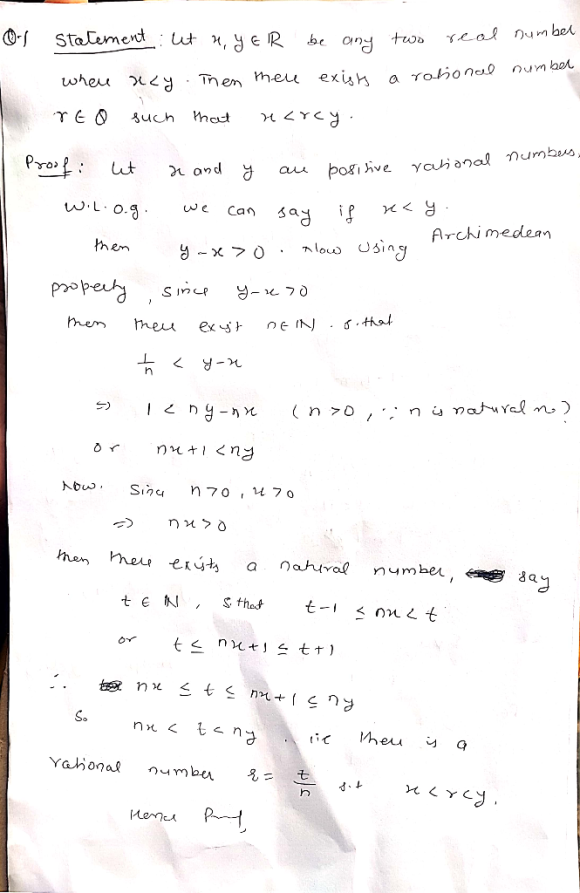 Q.1 Statement : Let x, y ∈ R be any two real number
where x<y . Then there exists a rational number
r ∈ Q such that x < r < y .
Proof : Let x and y are positive rational numbers.
W.L.O.g. we can say if x < y .
then y - x > 0 . Now Using Archimedean
property , since y-x >0
then there exist n ∈ IN . s.that
1/n < y-x
⇒ 1 < ny - nx ( n >0 , ∵ n is natural no.)
or nx + 1 < ny
Now. Since n >0 , x >0
⇒ nx > 0
then there exists a natural number, say
t ∈ IN , s that t-1 ≤ nx < t
or t ≤ nx+1 ≤ t+1
∴ nx ≤ t ≤ nx+1 ≤ ny
So nx < t < ny . i.e there is a
rational number r = t/n s.t x < r < y.
Hence Proof